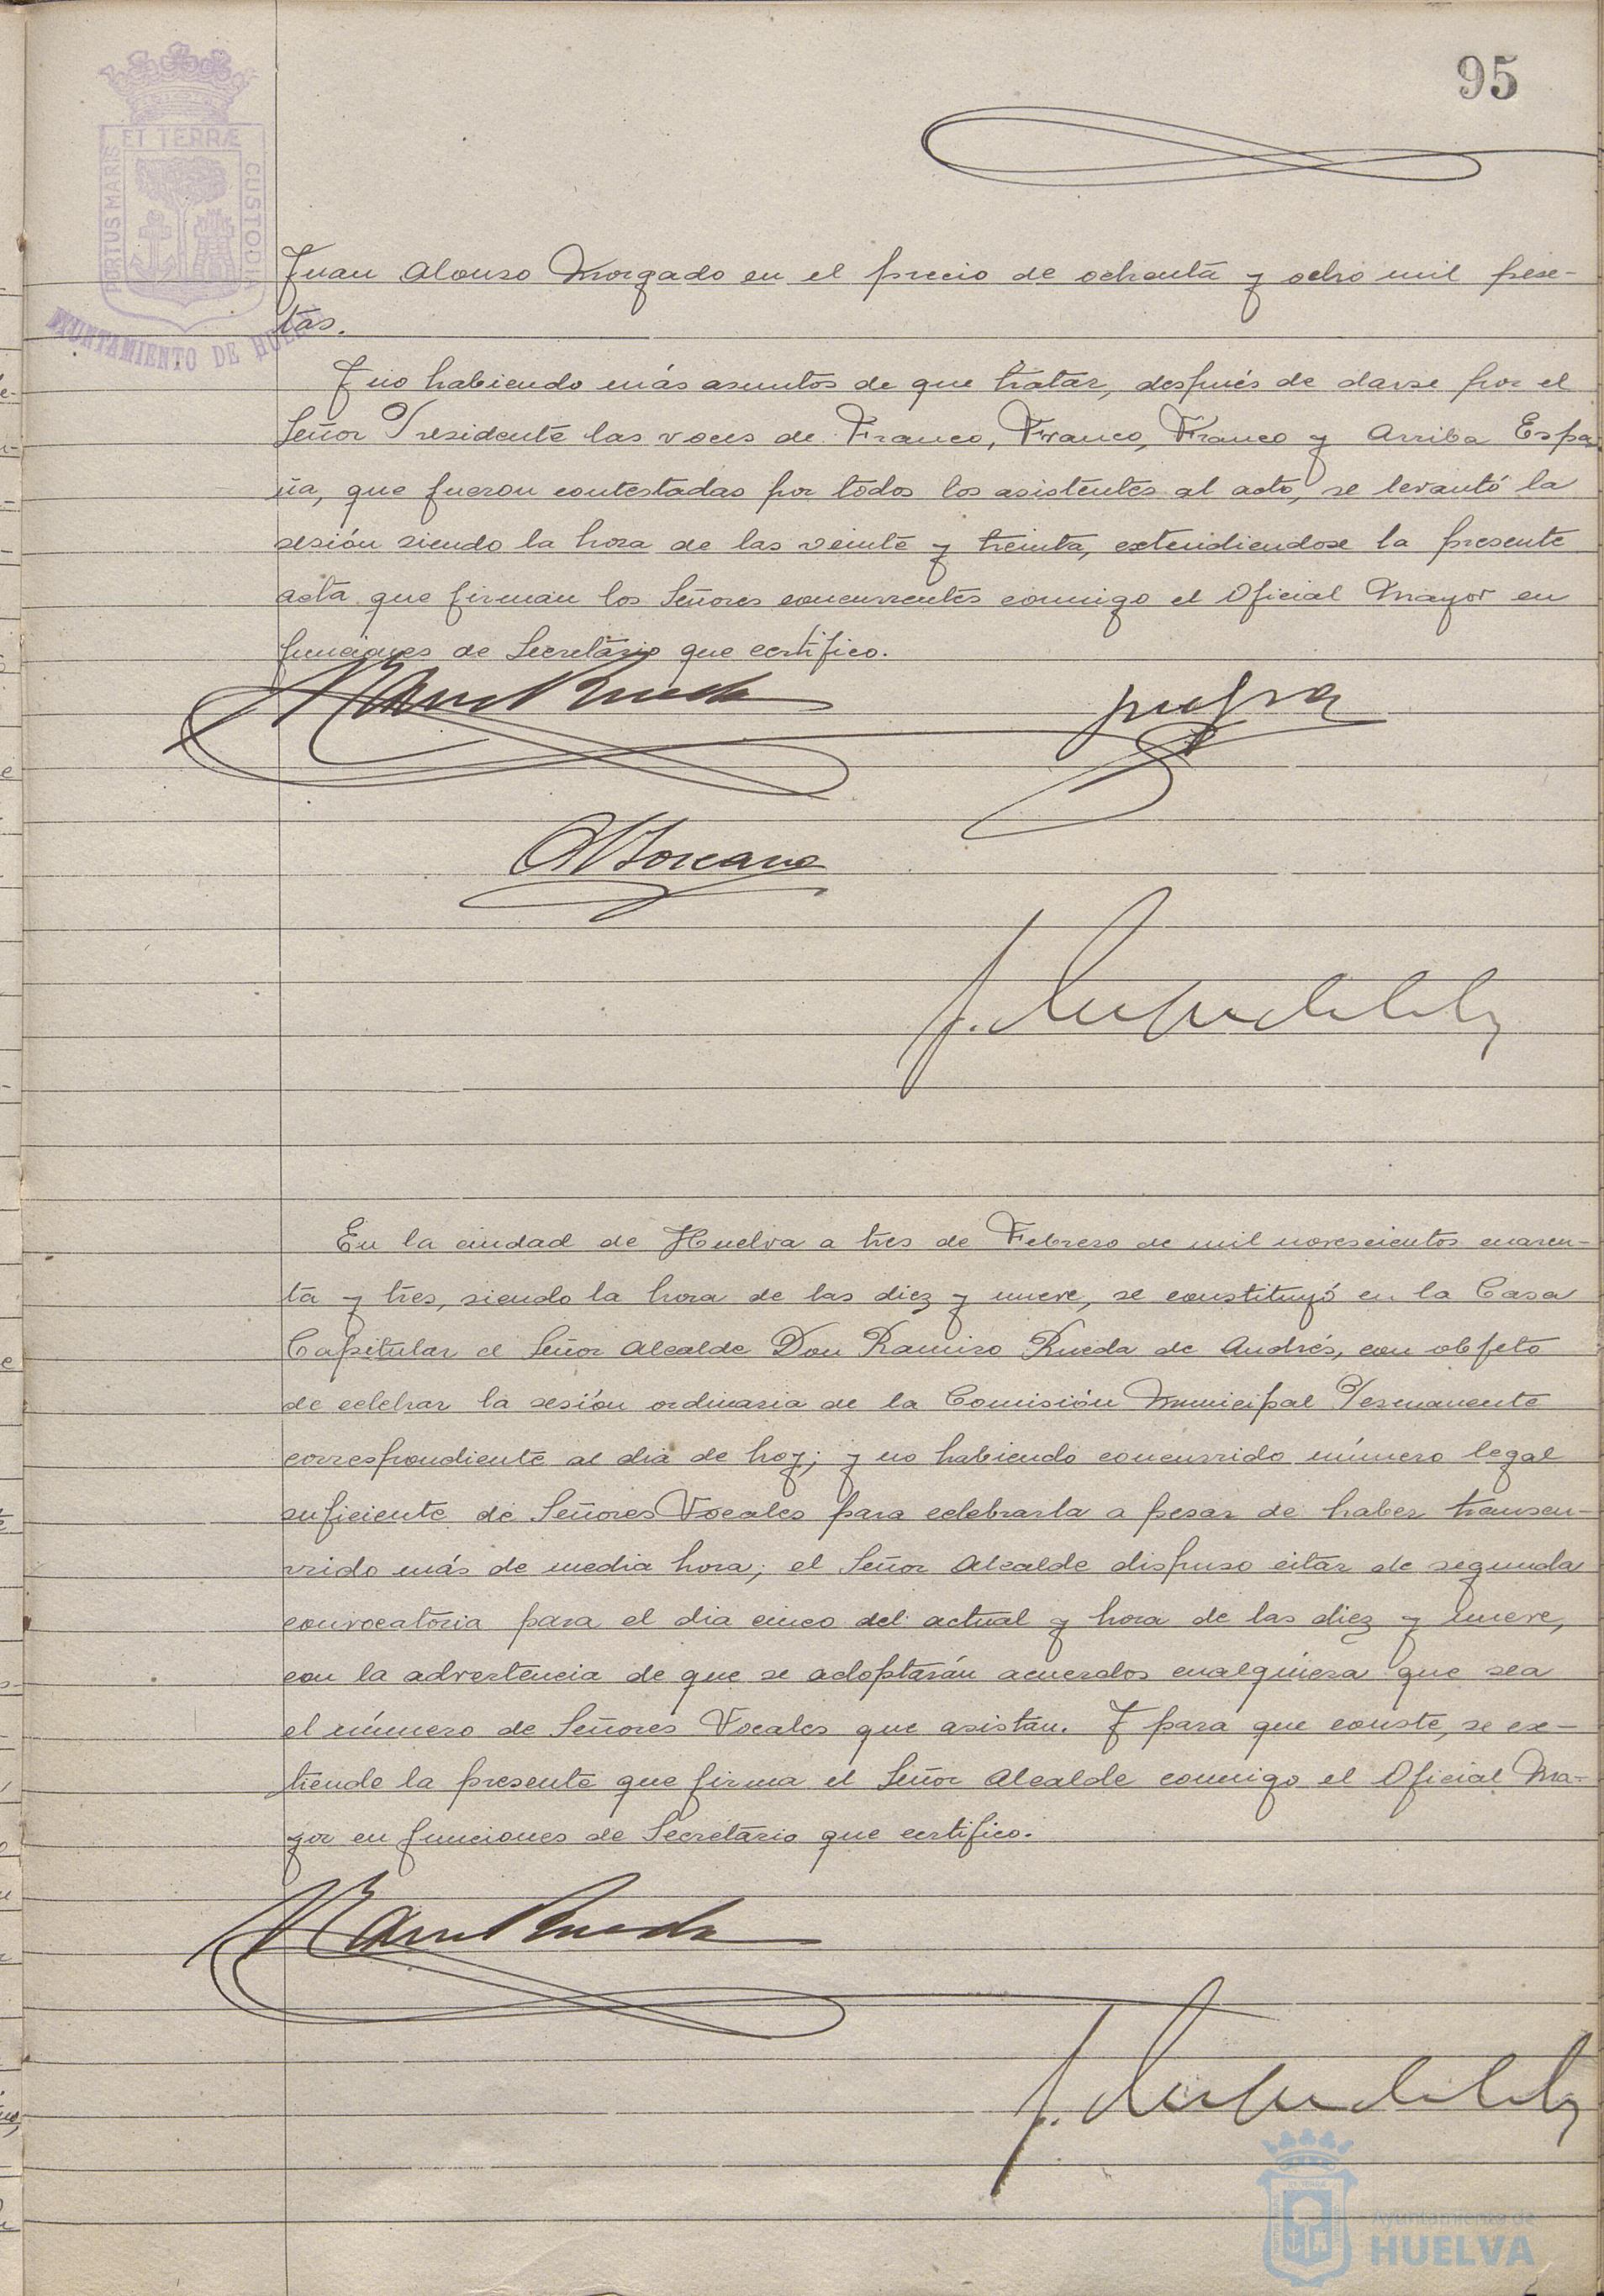 95
ET TERRÆ
PORTUS MARIS
CUSTODIA
AYUNTAMIENTO DE HUELVA
Juan Alonso Morgado en el precio de ochenta y ocho mil pese-
tas.
Y no habiendo más asuntos de que tratar, después de darse por el
Señor Presidente las voces de Franco, Franco, Franco y Arriba Espa
ña, que fueron contestadas por todos los asistentes al acto, se levantó la
sesión siendo la hora de las veinte y treinta, extendiendose la presente
acta que firman los Señores concurrentes conmigo el Oficial Mayor en
funciones de Secretario que certifico.
En la ciudad de Huelva a tres de Febrero de mil novescientos cuaren-
ta y tres, siendo la hora de las diez y nueve, se constituyó en la Casa
Capitular el Señor Alcalde Don Ramiro Rueda de Andrés, con objeto
de celebrar la sesión ordinaria de la Comisión Municipal Permanente
correspondiente al dia de hoy; y no habiendo concurrido número legal
suficiente de Señores Vocales para celebrarla a pesar de haber transcu-
rrido más de media hora; el Señor Alcalde dispuso citar de segunda
convocatoria para el dia cinco del actual y hora de las diez y nueve,
con la advertencia de que se adoptarán acuerdos cualquiera que sea
el número de Señores Vocales que asistan. Y para que conste, se ex-
tiende la presente que firma el Señor Alcalde conmigo el Oficial Ma-
yor en funciones de Secretario que certifico.
Ayuntamiento de
HUELVA